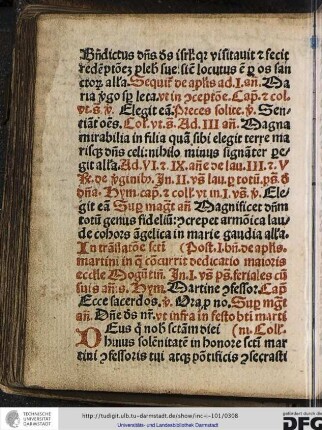 Bñdictus dñs ds isrl̃ qr visitauit ⁊ fecit
redẽptõez pleb̃ sue: sic̃ locutus ẽ p os san
ctoꝝ all̃a. Sequit̃ de aplis ad. I. an̄. Ma
ria ỹgo sp̃ leta. vt in ꝯceptõe. Cap̃. ⁊ col.
vt. s̃. ỹ. Elegit eã. Preces solite. ỹ. Sen
ciãt oẽs. Col. vt. s̃. Ad. III añ. Magna
mirabilia in filia quã sibi elegit terre ma
risqꝫ dñs celi: nihilo minus signãter pe
git all̃a. Ad. VI. ⁊. IX. añe de lau. III. ⁊. V
de ỹginib̃. In. II. vs̃ lau. p totũ. ps̃. ð
dña. Hym. cap̃. ⁊ coll. vt in. I. vs̃. ỹ. Ele
git eã Sup mag̃t añ Magnificet dñm
totũ genus fideliũ: ꝯcrepet armõica lau
de cohors ãgelica in marie gaudia all̃a.
In trãslatõe scti (Post. I. bñ. de aplis.
martini in q̃ cõcurrit dedicatio maioris
eccl̃ie Mogũtiñ. In. I. vs̃ ps̃. feriales cũ
suis añ: s̃. Hym. Martine ꝯfessor. Cap̃
Ecce sacerdos. ỹ. Ora. p no. Sup mg̃t
añ. Dñe ds̃ nr̃. vt infra in festo bti marti
Deus q̃ nob̃ scẽam diei (ni. Coll.
huius solẽnitatẽ in honore scti mar
tini ꝯfessoris tui atqꝫ põtificis ꝯsecrasti
TECHNISCHE
UNIVERSITÄT
DARMSTADT
http://tudigit.ulb.tu-darmstadt.de/show/inc-i-101/0308
Universitäts- und Landesbibliothek Darmstadt
gefördert durch die
DFG